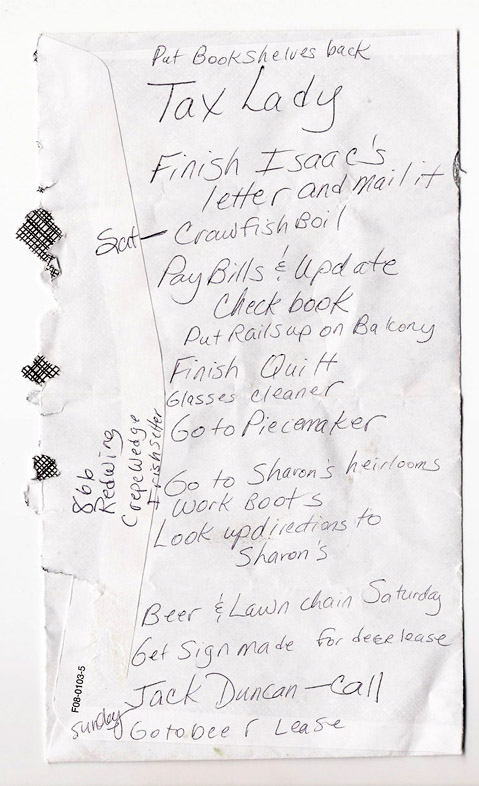 Put Bookshelves back
Tax Lady
Finish Isaac's
letter and mail it
Sat — Crawfish Boil
Pay Bills & Update
Check book
Put Rails up on Balcony
Finish Quilt
Glasses cleaner
Go to Piecemaker
866
Redwing
Crepe Wedge
Irish Setter
Go to Sharon's heirlooms
Work Boots
Look up directions to
Sharon's
Beer & Lawn chain Saturday
Get Sign made for deer lease
Jack Duncan — Call
Sunday Go to beer Lease
F08-0103-5